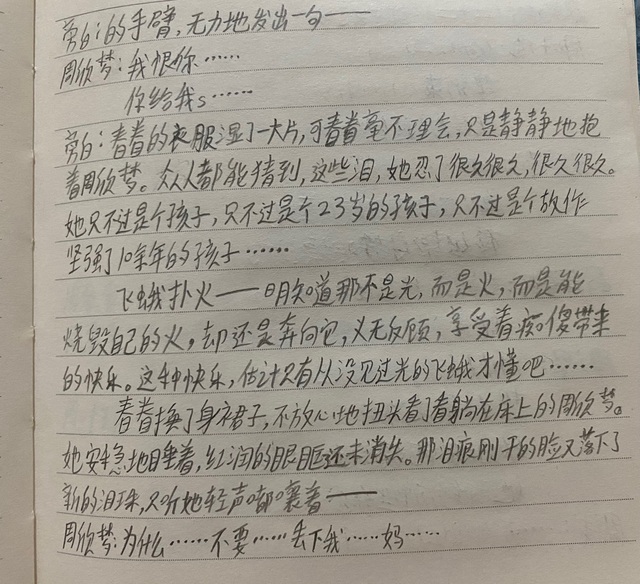 旁白：的手臂，无力地发出一句——
周欣梦：我恨你……
你给我s……
旁白：春春的衣服湿了一大片，可春春毫不理会，只是静静地抱
着周欣梦。众人都能猜到，这些泪，她忍了很久很久，很久很久。
她只不过是个孩子，只不过是个23岁的孩子，只不过是个故作
坚强了10余年的孩子……
飞蛾扑火——明知道那不是光，而是火，而是能
烧毁自己的火，却还是奔向它，义无反顾，享受着痴傻带来
的快乐。这种快乐，估计只有从没见过光的飞蛾才懂吧……
春春换了身裙子，不放心地扭头看了看躺在床上的周欣梦。
她安静地睡着，红润的眼眶还未消失。那泪痕刚干的脸又落下了
新的泪珠，只听她轻声嘟囔着——
周欣梦：为什么……不要……丢下我……妈……